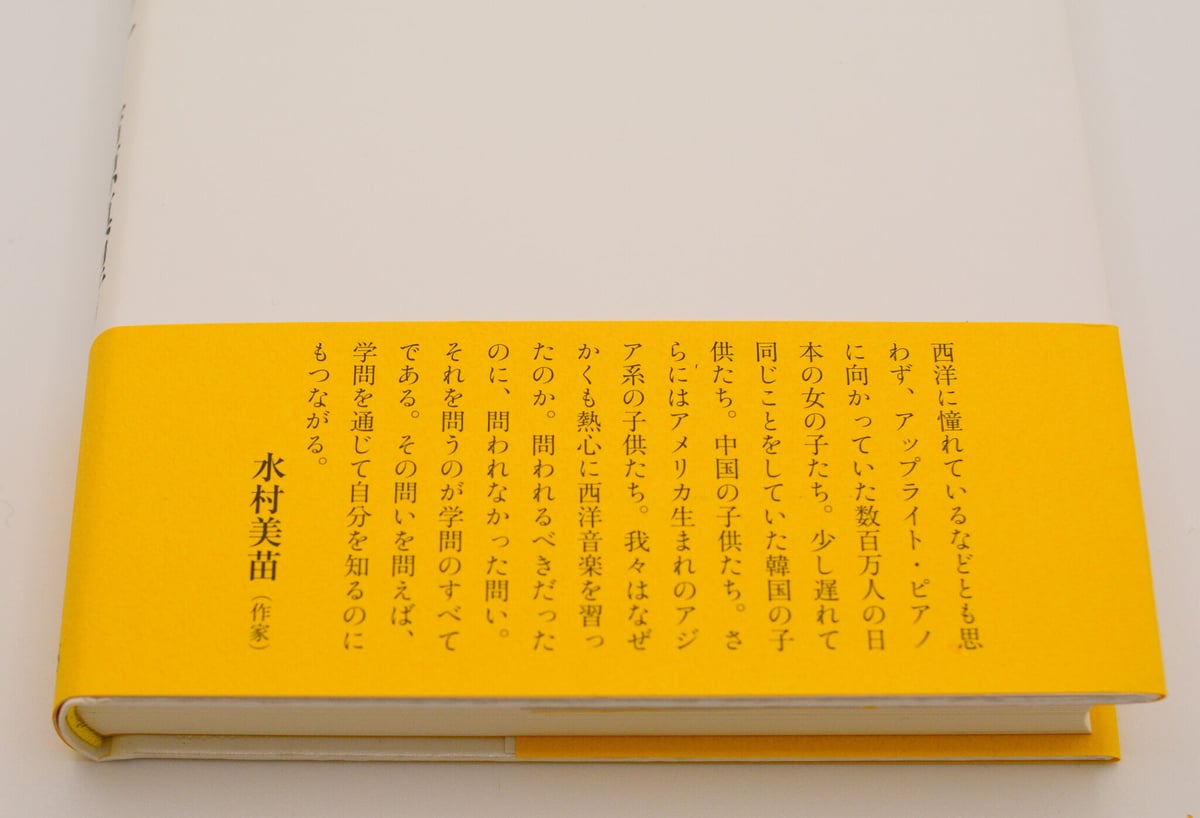 西洋に憧れているなどとも思
わず、アップライト・ピアノ
に向かっていた数百万人の日
本の女の子たち。少し遅れて
同じことをしていた韓国の子
供たち。中国の子供たち。さ
らにはアメリカ生まれのアジ
ア系の子供たち。我々はなぜ
かくも熱心に西洋音楽を習っ
たのか。問われるべきだった
のに、問われなかった問い。
それを問うのが学問のすべて
である。その問いを問えば、
学問を通じて自分を知るのに
もつながる。
水村美苗（作家）